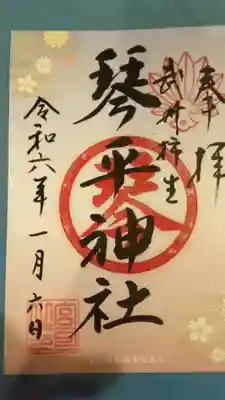 奉拝
武州柿生
琴平神社
令和六年一月六日